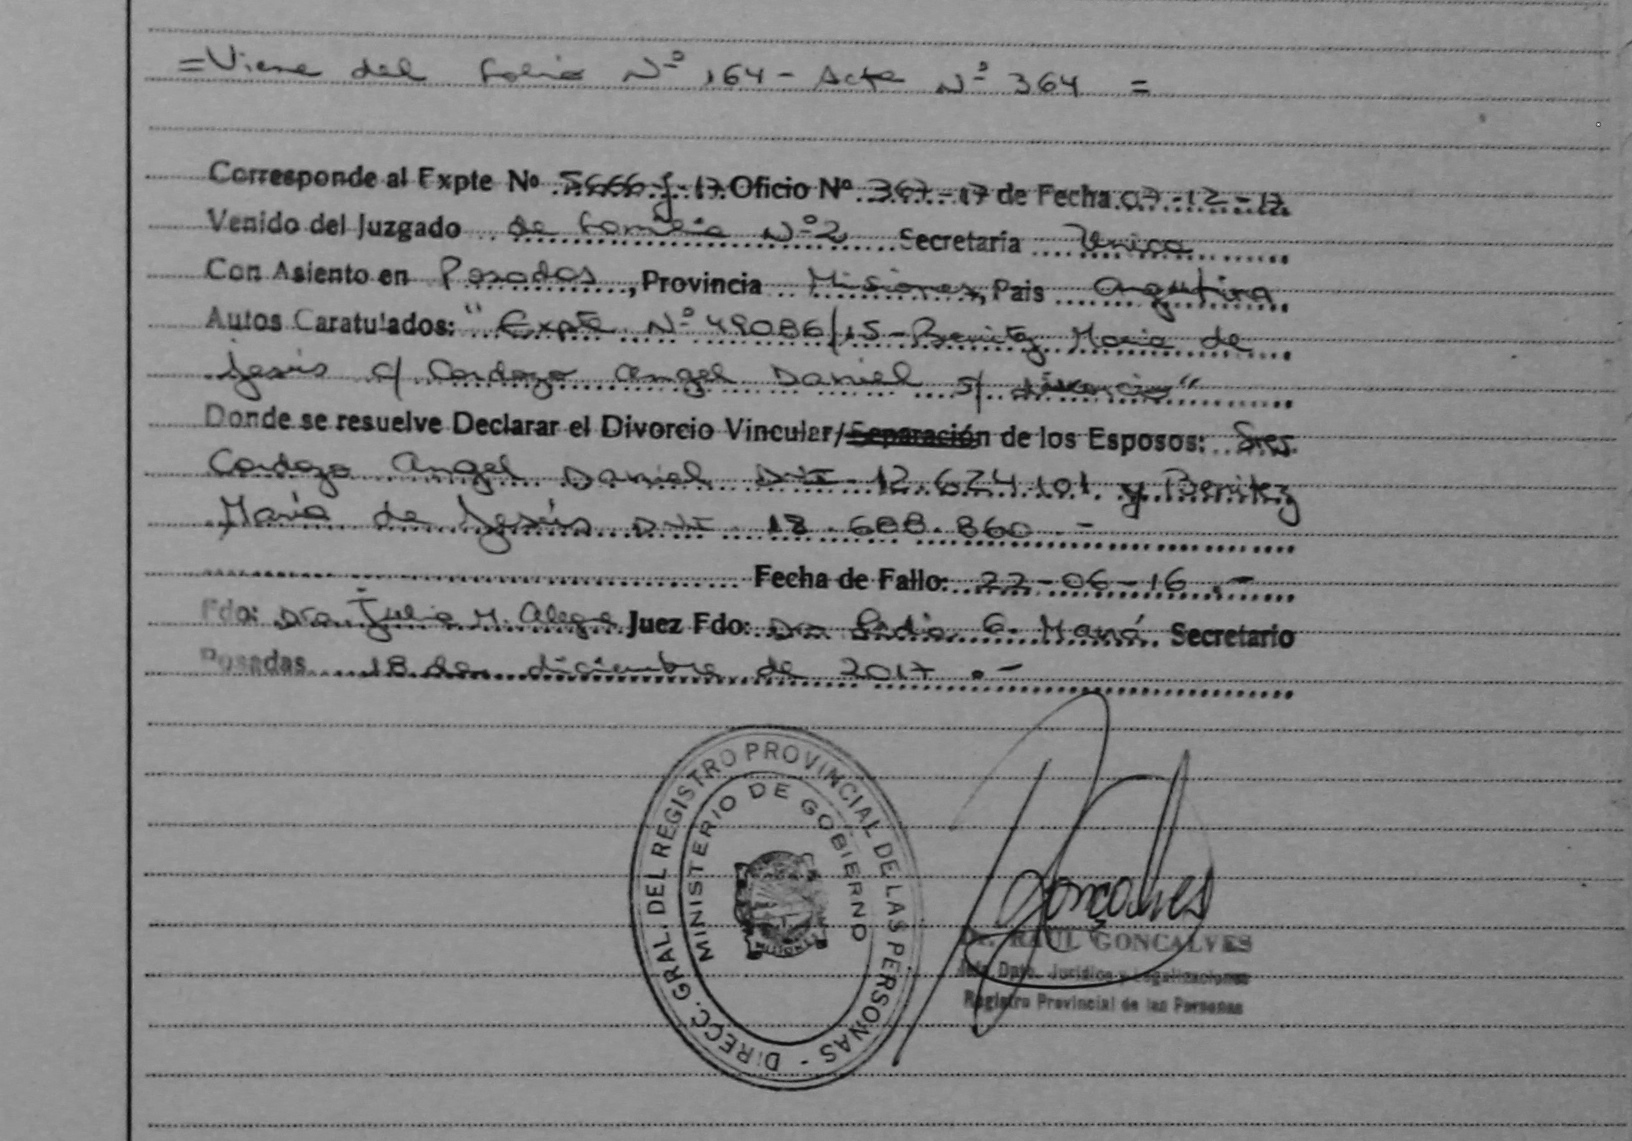 =Viene del folio Nº 164 - Acta Nº 364 =
Corresponde al Expte Nº 5666-J-17 Oficio Nº 367-17 de Fecha 07-12-17
Venido del Juzgado de familia Nº 2 Secretaría Unica
Con Asiento en Posadas, Provincia Misiones, Pais Argentina
Autos Caratulados: "Expte Nº 49086/15 - Benitez Maria de
Jesús c/ Cardozo Angel Daniel s/ divorcio"
Donde se resuelve Declarar el Divorcio Vincular/Separación de los Esposos: Sres.
Cardozo Angel Daniel DNI 12.624.101 y Benitez
María de Jesús DNI 18.688.860 -
Fecha de Fallo: 22-06-16 .-
Fdo: Dra. Julia M. Alegre Juez Fdo: Dra G. Secretario
Posadas 18 de diciembre de 2017 .-
DIRECC. GRAL. DEL REGISTRO PROVINCIAL DE LAS PERSONAS -
MINISTERIO DE GOBIERNO
Gonçalves
Dr. RAUL GONCALVES
Jefe Dpto. Jurídico y Legalizaciones
Registro Provincial de las Personas